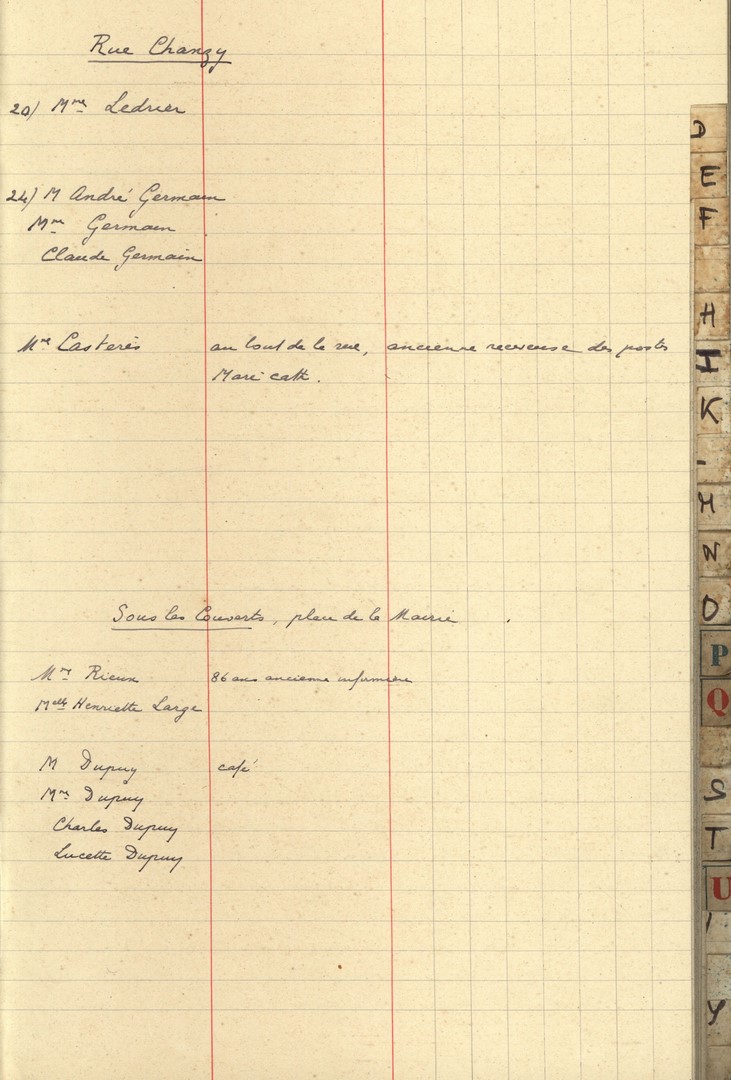 Rue Chanzy
20) Mme Ledrier
24) M André Germain
Mme Germain
Claude Germain
Mme Casterès au bout de la rue, ancienne receveuse des postes
Mari cath.
Sous les Couverts, place de la Mairie
Mme Rieux 86 ans ancienne infirmière
Melle Henriette Large
M Dupuy café
Mme Dupuy
Charles Dupuy
Lucette Dupuy
D
E
F
H
I
K
M
N
O
P
Q
S
T
U
Y